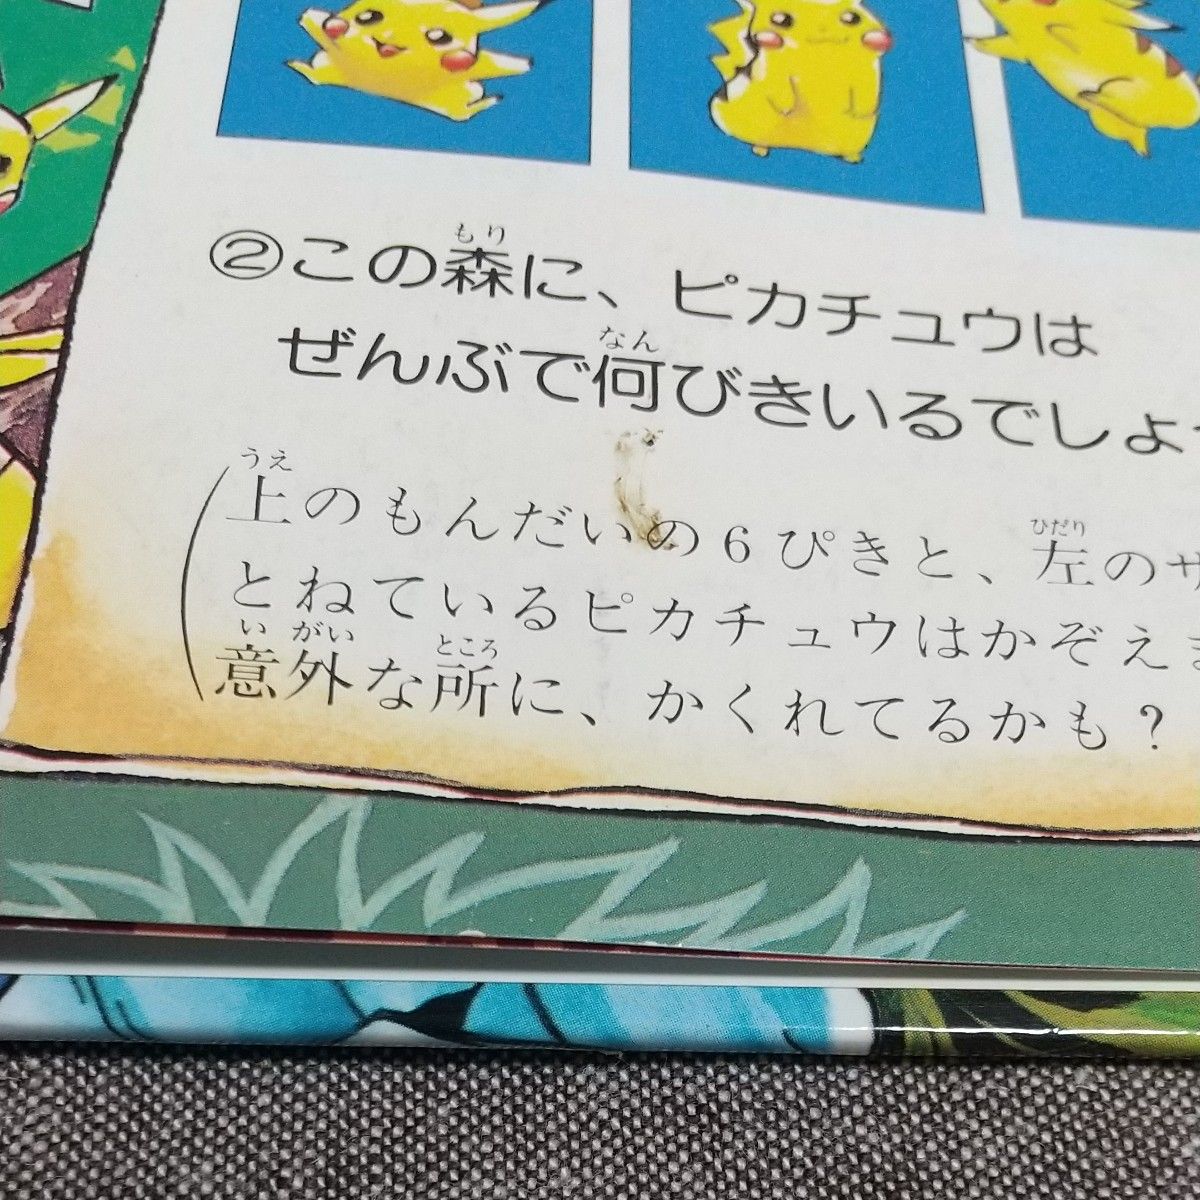 ②この森に、ピカチュウは
ぜんぶで何びきいるでしょ
上のもんだいの6ぴきと、左の
とねているピカチュウはかぞえ
意外な所に、かくれてるかも?